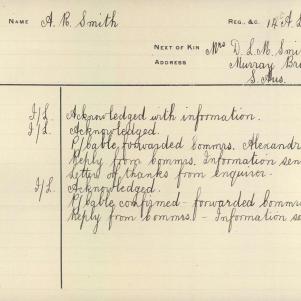 NAME A. R. Smith REG. &C. 14 A.L
NEXT OF KIN Mrs D. L. M. Smi
ADDRESS Murray Bri
S. Aus.
I/L. Acknowledged with information.
I/L. Acknowledged.
P/Cable forwarded Commrs. Alexandr
Reply from Commrs. Information sen
Letter of thanks from enquiror.
I/L. Acknowledged.
P/Cable confirmed - forwarded Commr
Reply from Commrs. - Information se